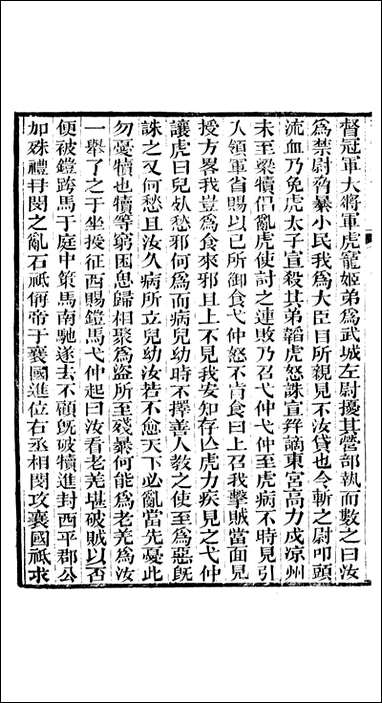 督冠軍大將軍虎寵姬弟爲武城左尉擾其營部執而數之曰汝
爲禁尉脅暴小民我爲大臣目所親見不汝貸也令斬之尉叩頭
流血乃免虎太子宣殺其弟韜虎怒誅宣幷謫東宮高力戍凉州
未至梁犢倡亂虎使討之連敗乃召弋仲弋仲至虎病不時見引
入領軍省賜以己所御食弋仲怒不肯食曰上召我擊賊當面見
授方畧我豈爲食來邪且上不見我安知存亾虎力疾見之弋仲
讓虎曰兒死愁邪何爲而病兒幼時不擇善人敎之使至爲惡旣
誅之又何愁且汝久病所立兒幼汝若不愈天下必亂當先憂此
勿憂犢也犢等窮困思歸相聚爲盜所至殘暴何能爲老羌爲汝
一舉了之于坐授征西賜鎧馬弋仲起曰汝看老羌堪破賊以否
便被鎧跨馬于庭中策馬南馳遂去不顧旣破犢進封西平郡公
加殊禮冉閔之亂石祗稱帝于襄國進位右丞相閔攻襄國祗求